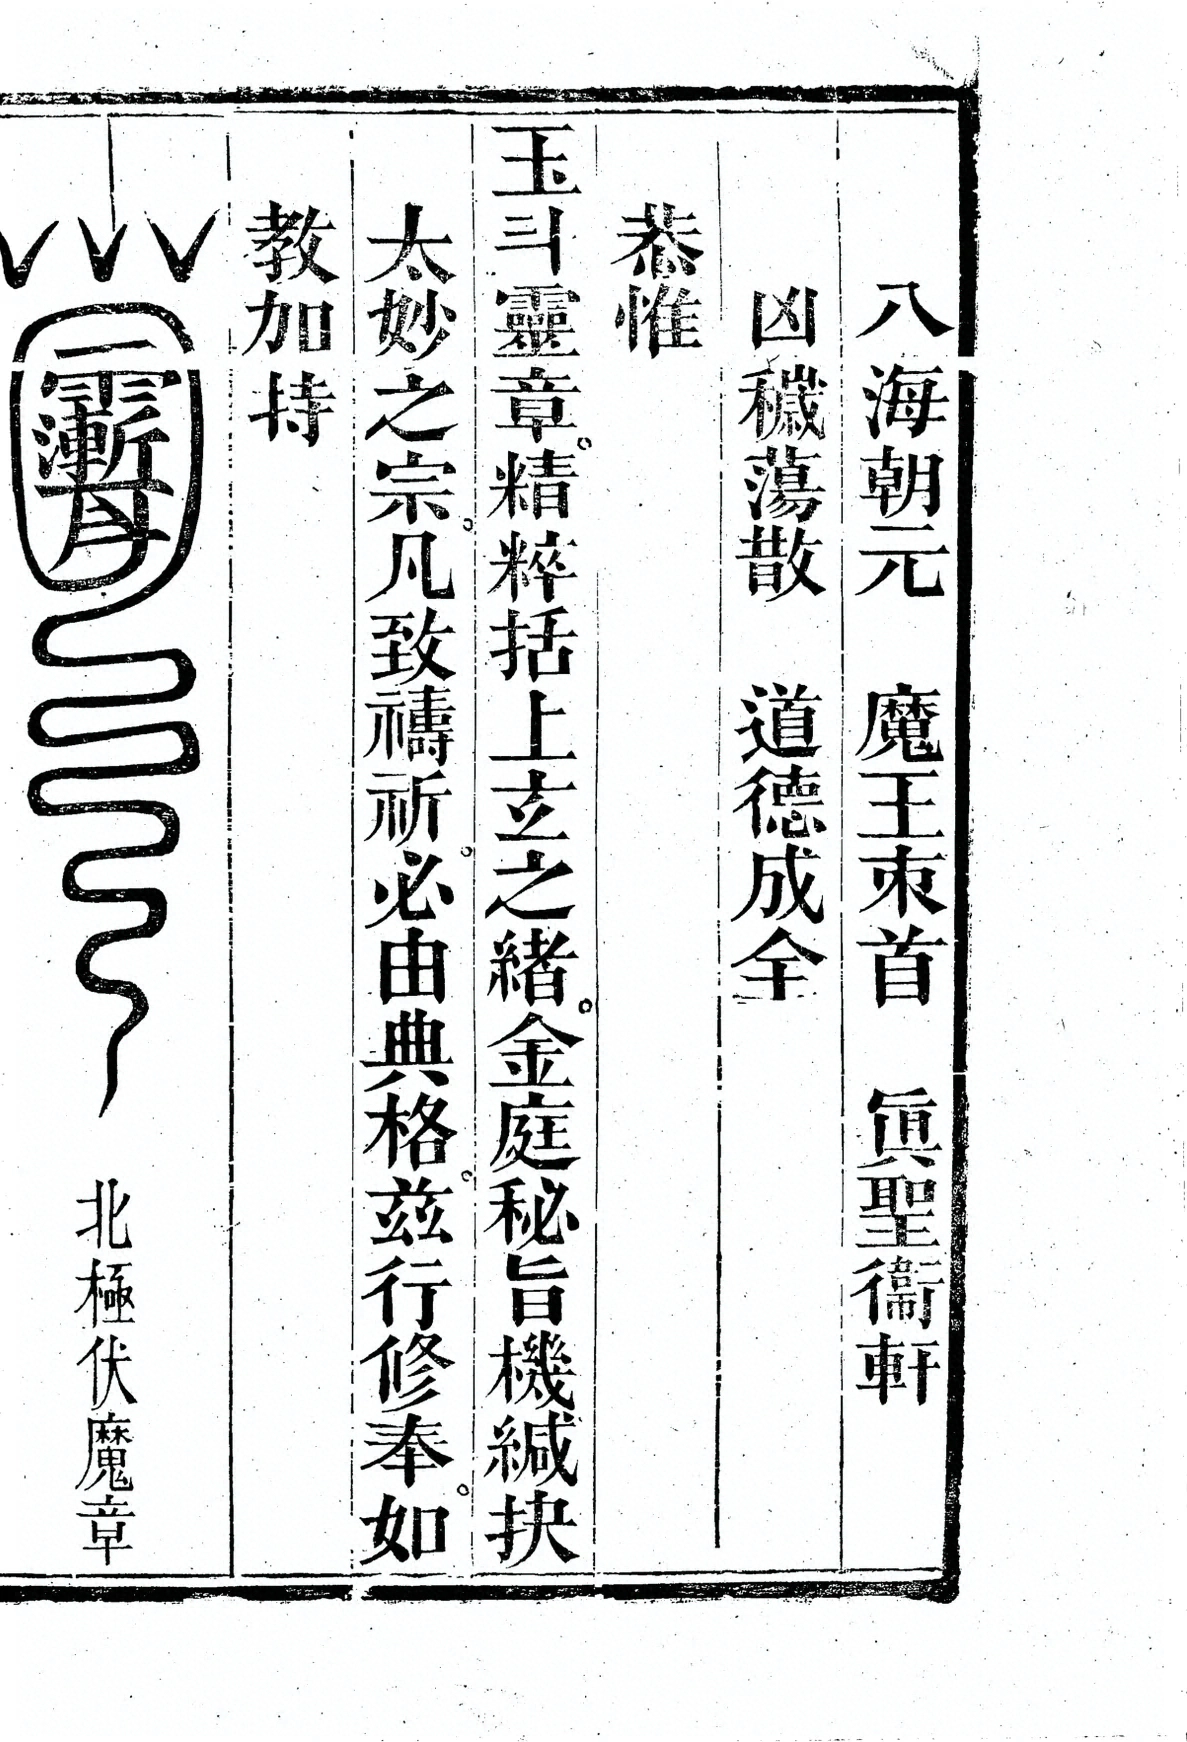 八海朝元　魔王朿首　眞聖衞軒
凶穢蕩散　道德成全
恭惟
玉斗靈章。精粹括上玄之緒。金庭秘旨機緘抉
太妙之宗。凡致禱祈。必由典格。兹行修奉。如
教加持
北極伏魔章